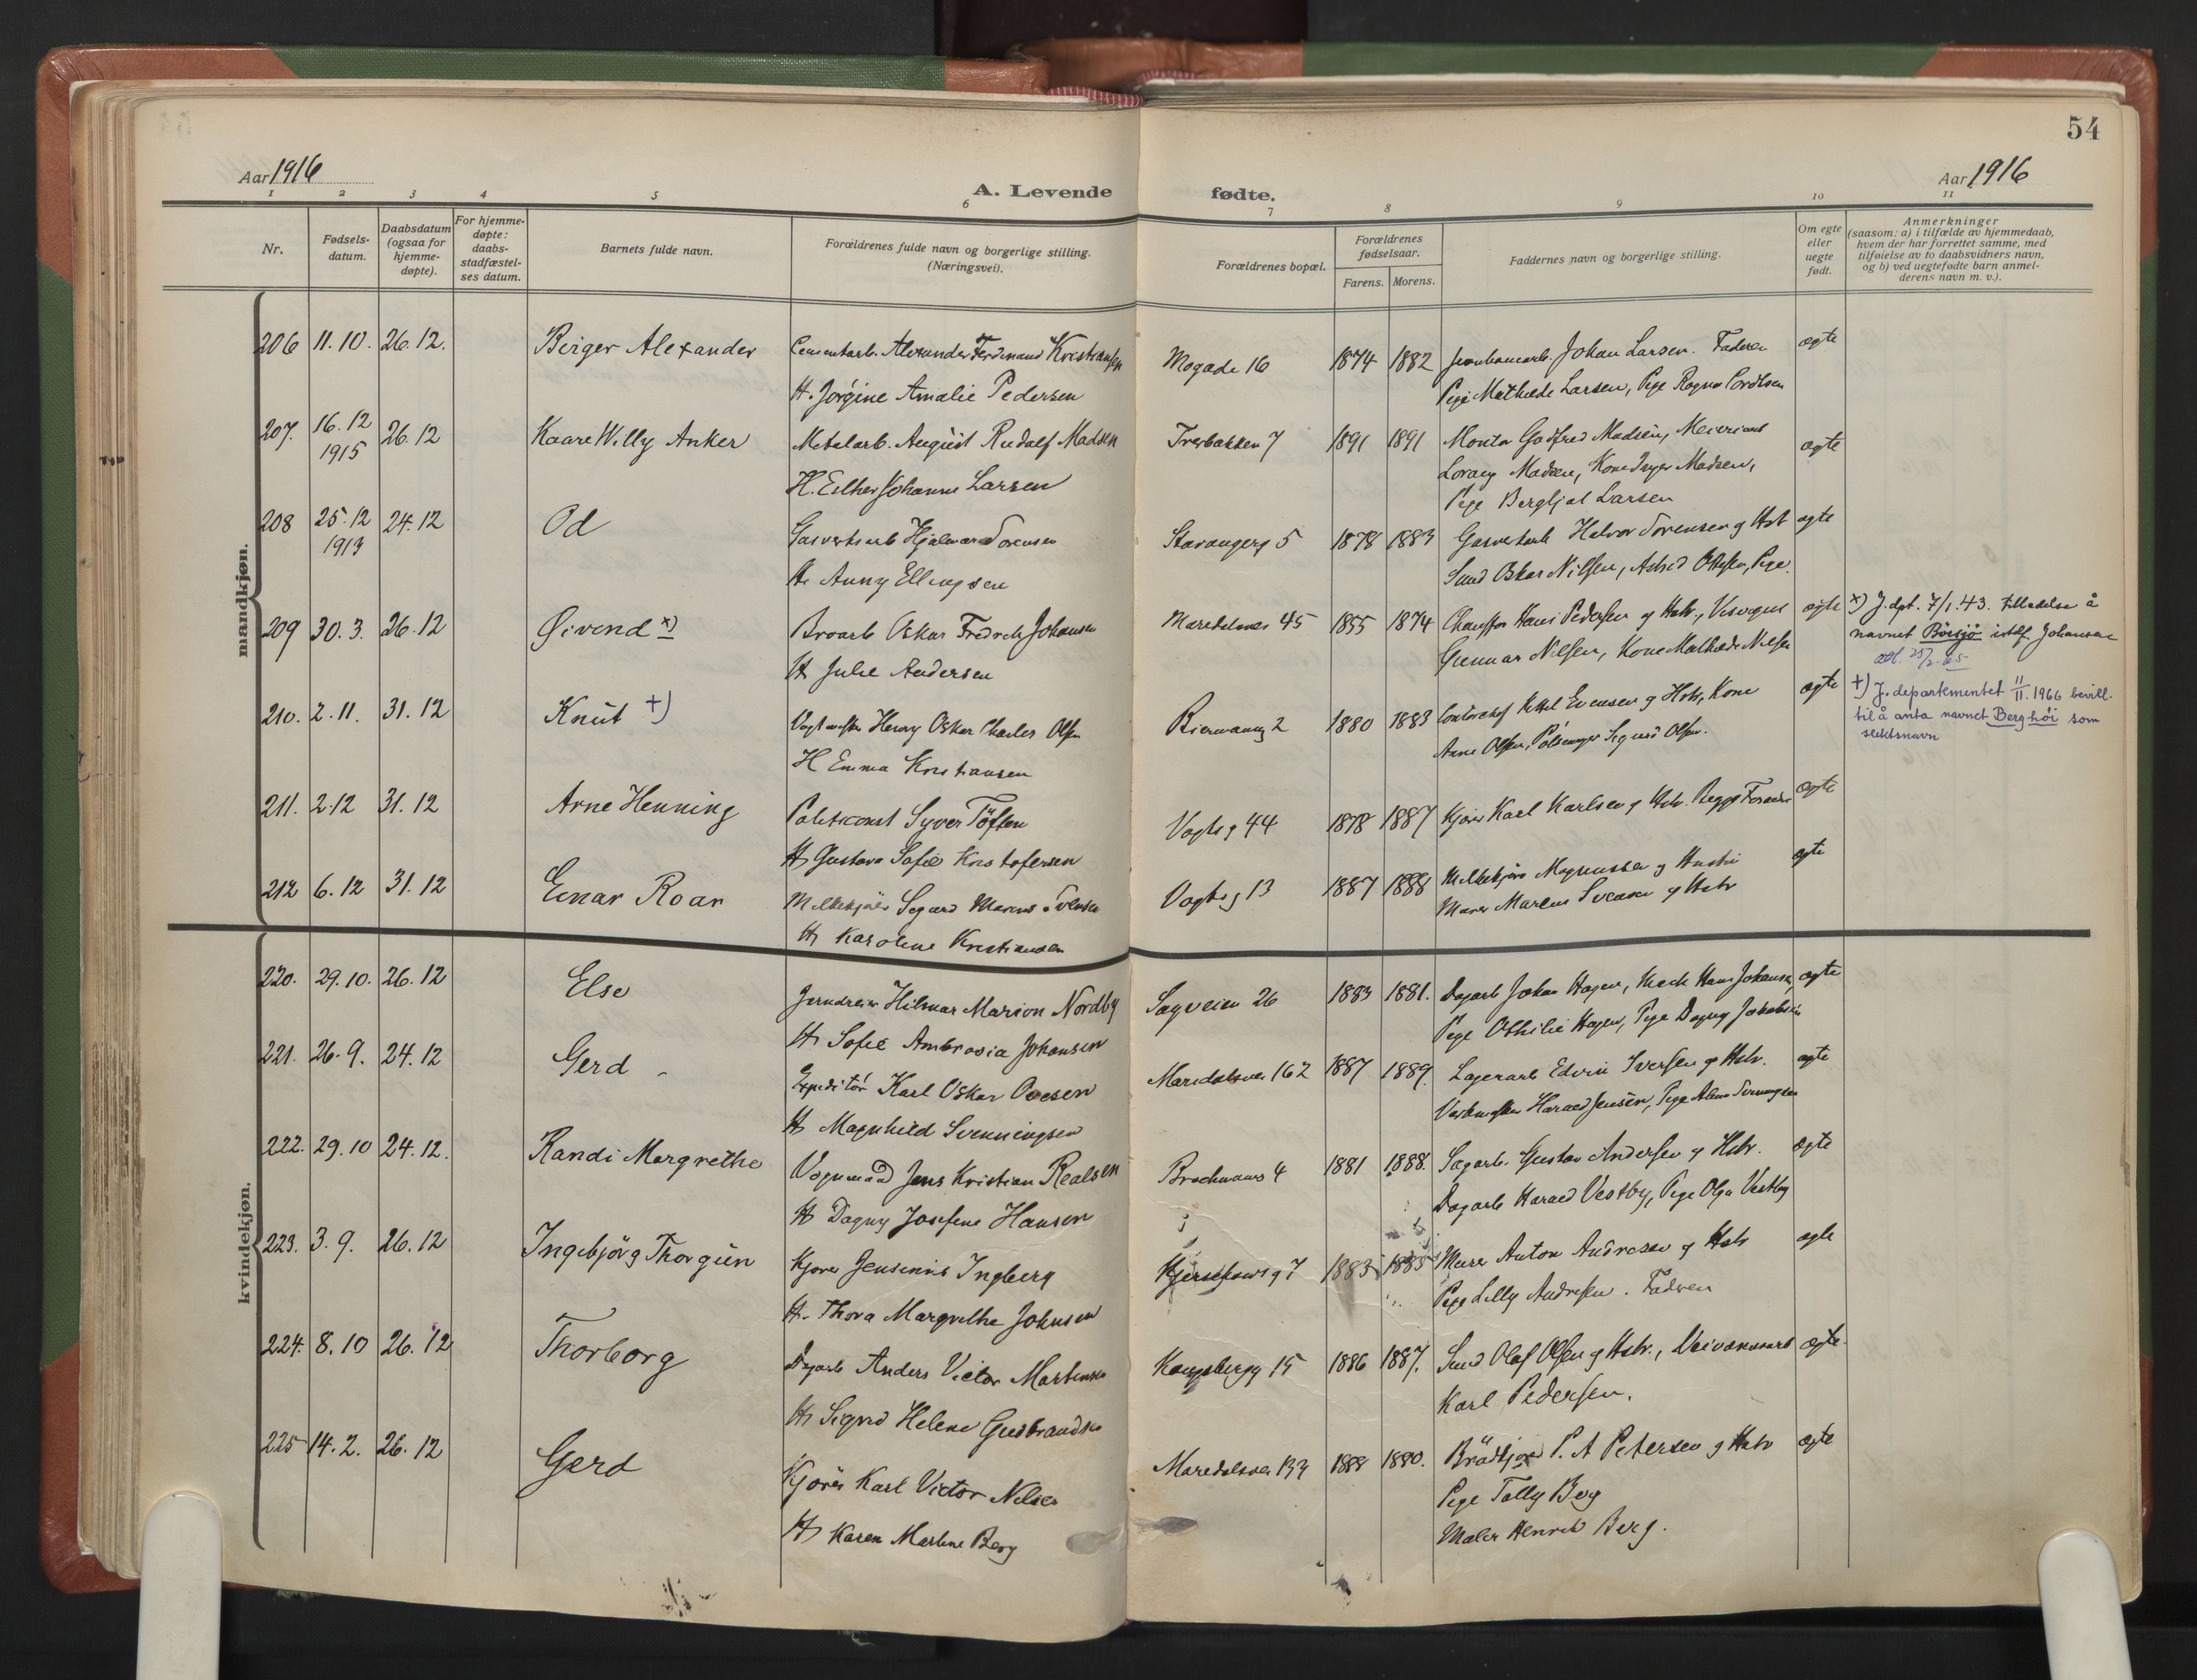 54
Aar 1916
A. Levende fødte.
Aar 1916
1 2 3 4 5 6 7 8 9 10 11
Nr.
Fødsels-
datum.
Daabsdatum
(ogsaa for
hjemme-
døpte).
For hjemme-
døpte:
daabs-
stadfæstel-
ses datum.
Barnets fulde navn.
Forældrenes fulde navn og borgerlige stilling.
(Næringsvei).
Forældrenes bopæl.
Forældrenes
fødselsaar.
Farens. Morens.
Faddernes navn og borgerlige stilling.
Om egte
eller
uegte
født.
Anmerkninger
(saasom: a) i tilfælde av hjemmedaab,
hvem der har forrettet samme, med
tilføielse av to daabsvidners navn,
og b) ved uegtefødte barn anmel-
derens navn m. v.).
mandkjøn.
206 11. 10. 26. 12. Birger Alexander Cementarb. Alexander Ferdinand Kristiansen Mogade 16 1874 1882 Johan Larsen. Faderen ægte
H. Jørgine Amalie Pedersen Pige Mathilde Larsen, Pige Ragna
207. 16. 12 1915 26. 12 Kaare Willy Anker Metalarb. August Rudolf Madsen Iversbakken 7 1891 1891 Montør Godfred Madsen, Meieriarb ægte
H. Esther Johanne Larsen Madsen, Kone Inger Madsen,
Pige Bergljot Larsen
208 25. 12 1913 24. 12 Od Gasverksarb Hjalmar Sørensen Stavangerg 5 1878 1883 Gasverksarb Halvor Sørensen og Hst ægte
H. Anny Ellingsen Smed Oskar Nilsen, Astrid Pige.
209 30. 3. 26. 12 Øivind x) Broarb Oskar Fredrik Johansen Maridalsvei 45 1855 1874 Chauffør Hans Pedersen og Hstr., ægte x) J. dpt. 7/1. 43. tilladelse å
H Julie Andersen Gunnar Nilsen, Kone Mathilde Nilsen navnet Börsjö istdf. Johansen
210. 2. 11. 31. 12 Knut +) Vogtmester Henry Oskar Charles Olsen Biermannsg 2 1880 1883 Evensen og Hstr, Kone ægte +) J. departementet 11/11. 1966 bevill.
H Emma Kristiansen Anne Olsen, Sigurd Olsen. til å anta navnet Berghöi som
slektsnavn
211. 2. 12 31. 12 Arne Henning Politiconst Syver Töften Vogtsg 44 1878 1887 Kjører Karl Karlsen og Hstr. Begge Forældre ægte
H Gustava Sofie Kristofersen
212 6. 12 31. 12 Einar Roar Melkekjører Sigurd Marius Svensen Vogtsg 13 1887 1888 Melkekjører Magnussen og Hustru ægte
H Karoline Kristiansen Murer Marius Svensen og Hstr
kvindekjøn.
220. 29. 10. 26. 12 Else Jerndreier Hilmar Marion Nordby Sagveien 26 1883 1881. Dagarb Johan Hagen, Mech Hans Johansen, ægte
H Sofie Ambrosia Johansen Pige Othilie Hagen, Pige Dagny Jakobsen
221. 26. 9. 24. 12 Gerd Expeditør Karl Oskar Maridalsvei 162 1887 1889. Lagerarb Edvin Iversen og Hstr. ægte
H Magnhild Svenningsen Verkmester Harald Jensen, Pige Svenningsen
222. 29. 10 24. 12. Randi Margrethe Vognmand Jens Kristian Realsen 4 1881 1888. Sagarb. Gustav Andersen og Hstr. ægte
H Dagny Josefine Hansen Dagarb Harald Vestby, Pige Olga Vestby
223. 3. 9. 26. 12 Ingebjörg Thorgun Kjører Jensenius Ingberg 7 1883 1885 Murer Anton Andresen og Hstr ægte
H. Thora Margrethe Johnsen Pige Lilly Andresen. Fadren
224. 8. 10 26. 12 Thorborg Dagarb Anders Victor Martinsen Kongsbergg 15 1886 1887. Smed Olaf Olsen og Hstr., ægte
H Sigrid Helene Gulbrandsen Karl Pedersen.
225 14. 2. 26. 12 Gerd Kjører Karl Victor Nilsen Maridalsvei 133 1888 1880. Brödkjører P. A Petersen og Hstr ægte
H Karen Martine Berg Pige Tolly Berg
Maler Henrik Berg.